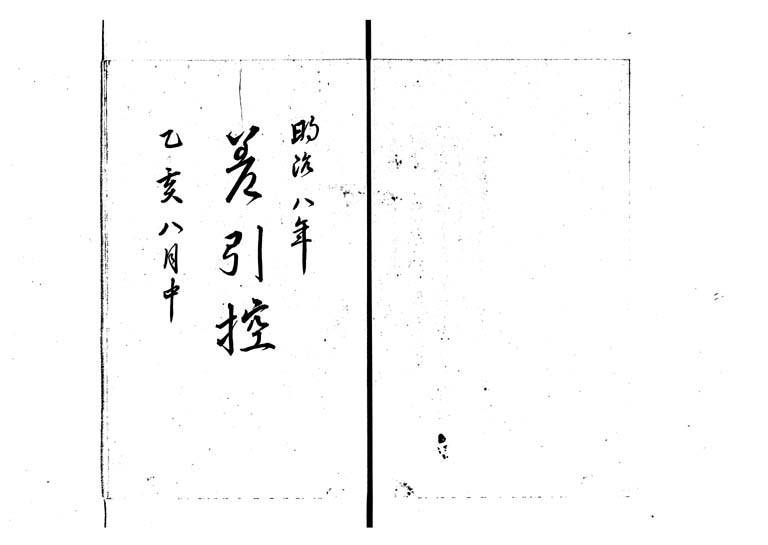 明治八年
差引控
乙亥八月中